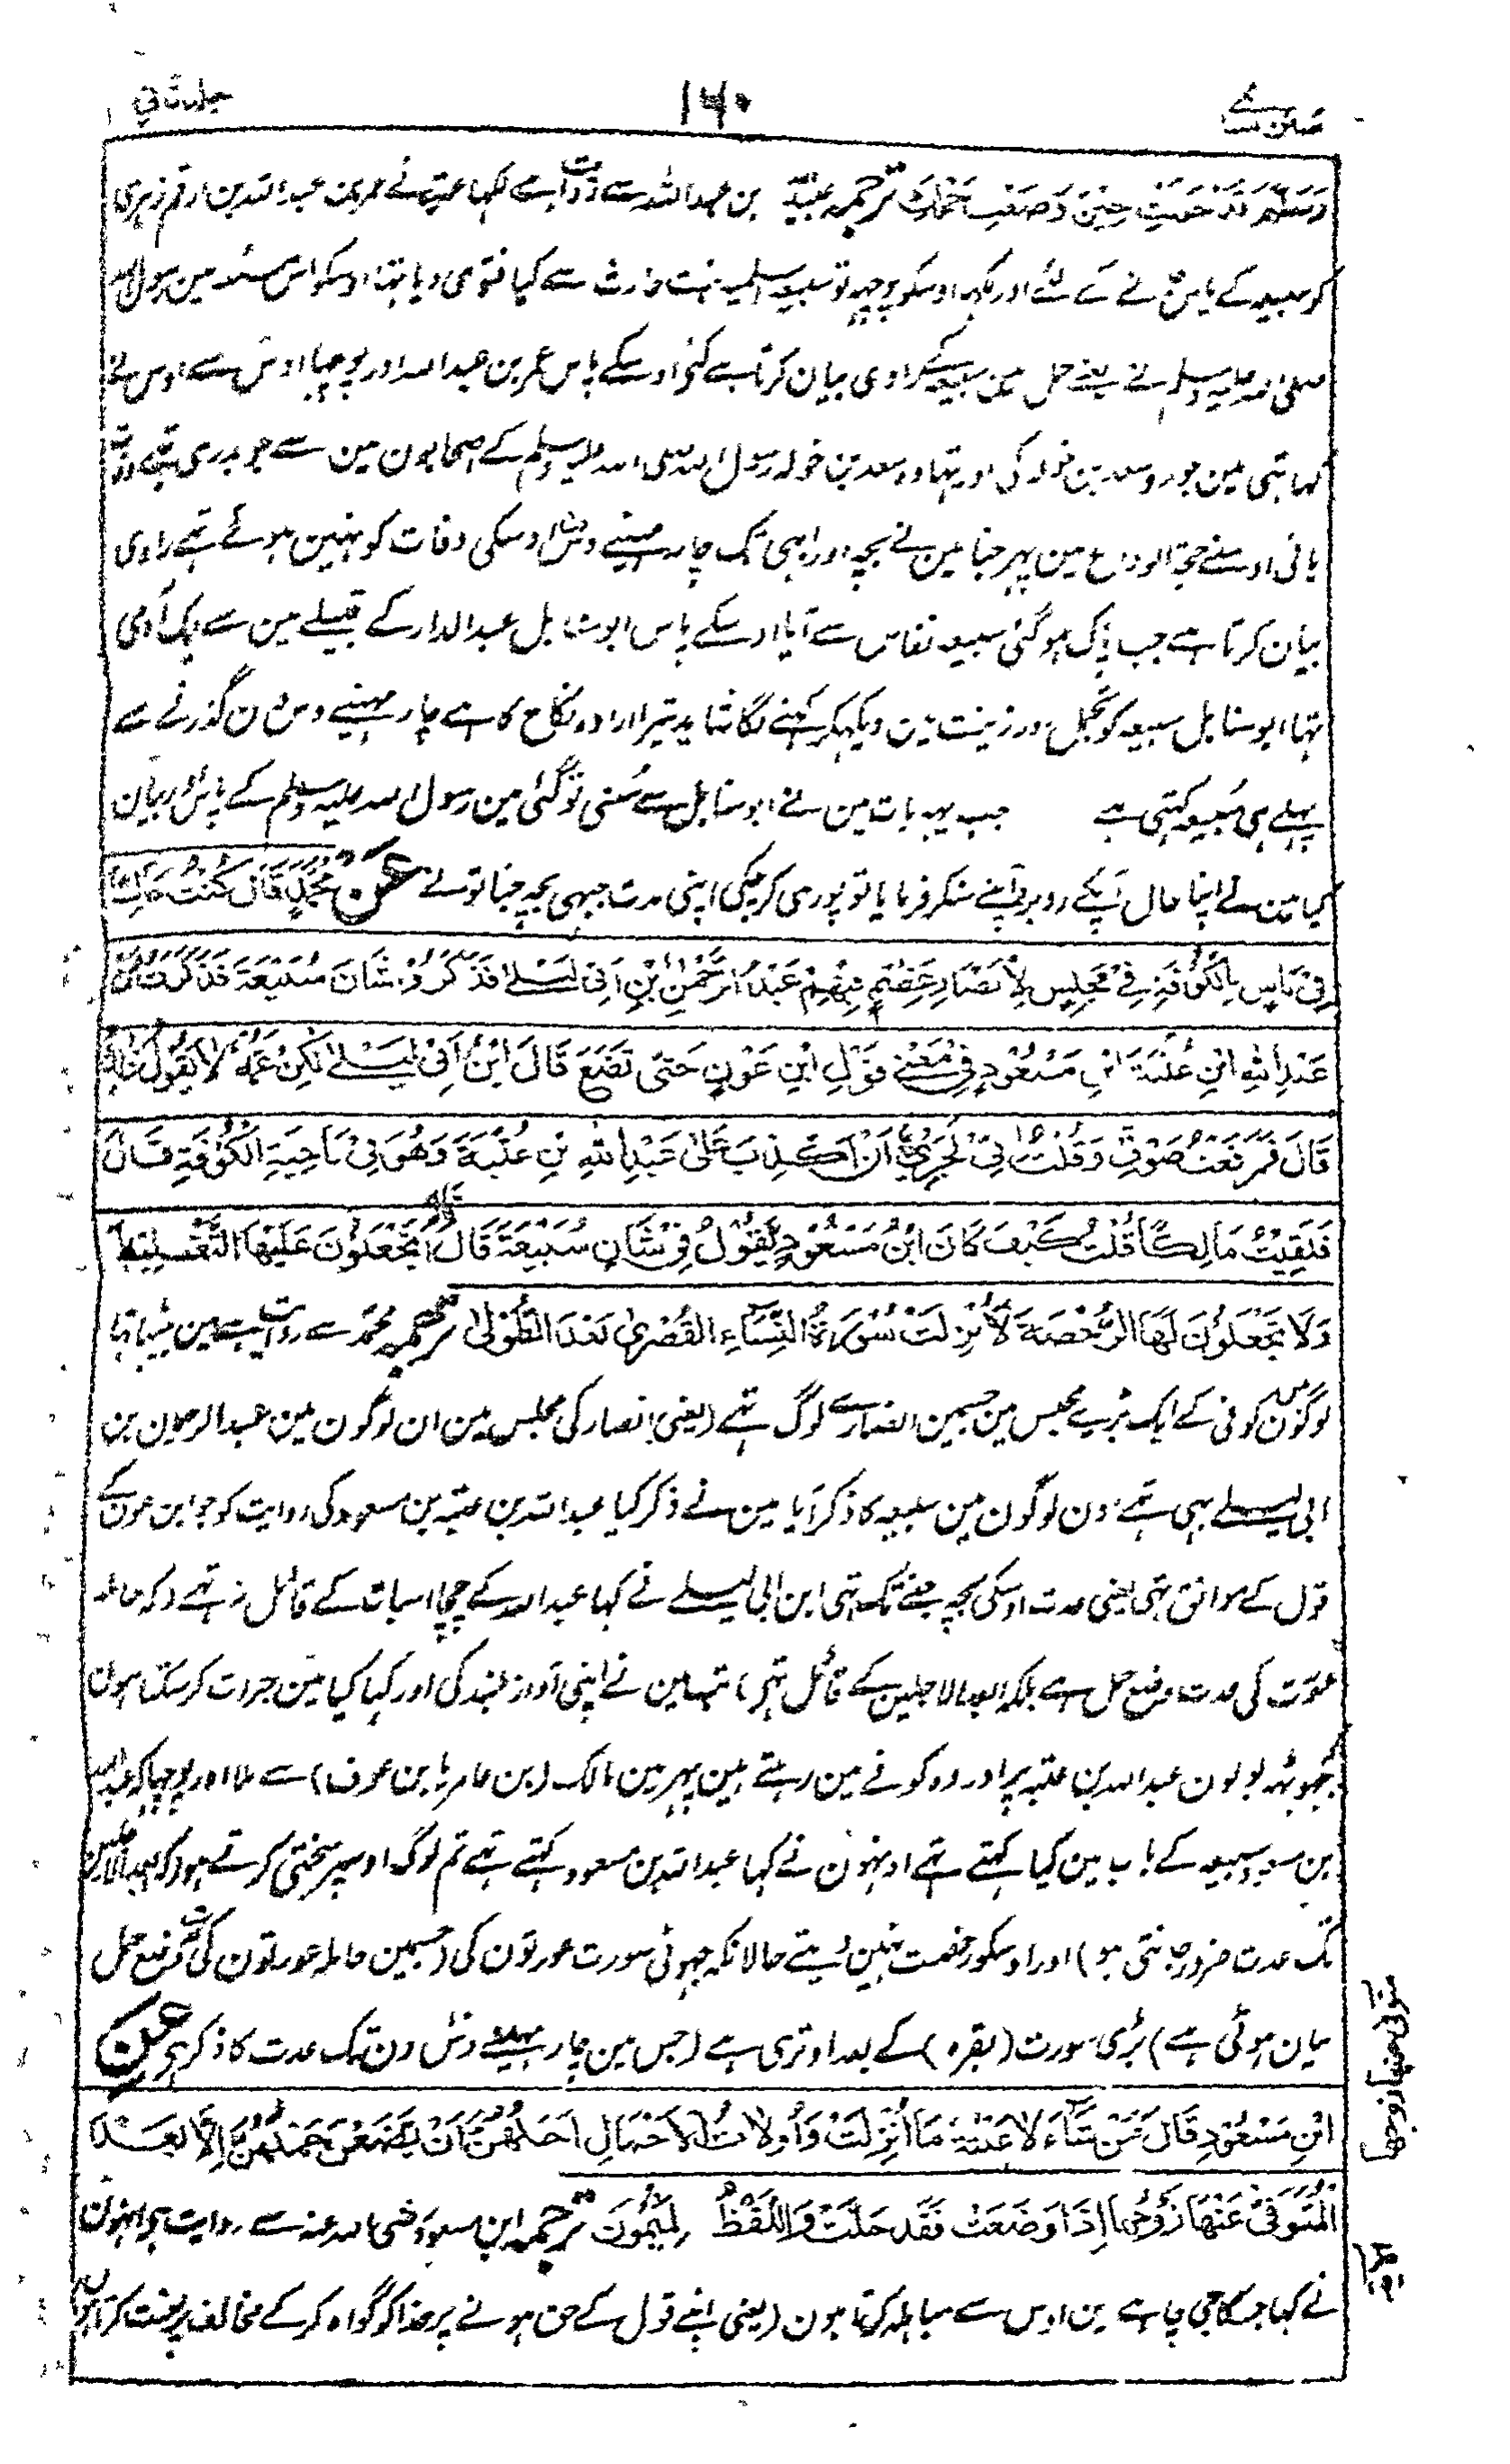 سنن نسائی ۱۶۰ جلد ثانی
وَسَلَّمَ قَدْ حَلَلْتِ حِيْنَ وَضَعْتِ حَمْلَكِ ترجمہ عبید بن عبداللہ سے روایت ہے لکہا عتبہ نے عمر بن عبداللہ بن ارقم زہری
کو سبیعہ کے پاس جانے کے لئے اور یہہ اوسکو پوچہہ تو سبیعہ اسلمیہ بنت حارث سے کیا فتوی دیا تہا اوسکو اس مسئلہ مین رسول اللہ
صلی اللہ علیہ وسلم نے یعنے حمل مین سبیعہ کے راوی بیان کرتا ہے گئی اوسکے پاس عمر بن عبداللہ اور پوچہا اوس سے اوس نے
کہا تہی مین جورو سعد بن خولہ کی اور تہا وہ سعد بن خولہ رسول اللہ صلی اللہ علیہ وسلم کے اصحابون مین سے جو بدری تہے وفات
پائی اوسنے حجۃ الوداع مین پہر جنا مین نے بچہ اور ابہی تک چار مہینے دس دن اوسکی وفات کو نہین ہوئے تہے راوی
بیان کرتا ہے جب پاک ہو گئی سبیعہ نفاس سے آیا اوسکے پاس ابو سنابل عبد الدار کے قبیلے مین سے ایک آدمی
تہا ابو سنابل سبیعہ کو تجمل اور زینت مین دیکہکر کہنے لگا شاید تیرا ارادہ نکاح کا ہے چار مہینے دس دن گذرنے سے
پہلے ہی سبیعہ کہتی ہے جب یہہ بات مین نے ابو سنابل سے سُنی تو گئی مین رسول اللہ علیہ وسلم کے پاس اور بیان
کیا مین نے اپنا حال آپکے روبرو آپنے سنکر فرمایا تو پوری کر چکی اپنی مدت جبہی بچہ جنا تونے عَنْ مُحَمَّدٍ قَالَ كُنْتُ جَالِسًا
فِيْ نَاسٍ بِالْكُوْفَةِ فِيْ مَجْلِسٍ لِلْاَنْصَارِ عَظِيْمٍ فِيْهِمْ عَبْدُ الرَّحْمٰنِ بْنِ اَبِيْ لَيْلٰے فَذَكَرُوْا شَانَ سُبَيْعَةَ فَذَكَرْتُ عَنْ
عَبْدِ اللهِ ابْنِ عُتْبَةَ ابْنِ مَسْعُوْدٍ فِيْ مَعْنٰے قَوْلِ ابْنِ عَوْنٍ حَتّٰى تَضَعَ قَالَ ابْنُ اَبِيْ لَيْلٰے لٰكِنْ عَمُّهُ لَا يَقُوْلُ ذٰلِكَ
قَالَ فَرَفَعْتُ صَوْتِيْ وَقُلْتُ اِنِّيْ لَجَرِيْءٌ اَنْ اَكْذِبَ عَلٰى عَبْدِ اللهِ بْنِ عُتْبَةَ وَهُوَ فِيْ نَاحِيَةِ الْكُوْفَةِ قَالَ
فَلَقِيْتُ مَالِكًا قُلْتُ كَيْفَ كَانَ ابْنُ مَسْعُوْدٍ يَقُوْلُ فِيْ شَانِ سُبَيْعَةَ قَالَ قَالَ اَتَجْعَلُوْنَ عَلَيْهَا التَّغْلِيْظَ
وَلَا تَجْعَلُوْنَ لَهَا الرُّخْصَةَ لَاُنْزِلَتْ سُوْرَةُ النِّسَاءِ الْقُصْرٰى بَعْدَ الطُّوْلٰى ترجمہ محمد سے روایت ہے مین بیٹہا تہا
لوگون مین کوفی کے ایک بڑے مجلس مین جسمین انصار کے لوگ تہے (یعنی انصار کی مجلس مین ان لوگون مین عبدالرحمٰن بن
ابی لیلے بہی تہے اون لوگون مین سبیعہ کا ذکر آیا مین نے ذکر کیا عبداللہ بن عتبہ بن مسعود کی روایت کو جو ابن عون کے
قول کے موافق تہی یعنی عدت اوسکی بچہ جنے تک تہی ابن ابی لیلے نے کہا عبداللہ کے چچا اسبات کے قائل نہ تہے (کہ حاملہ
عورت کی عدت وضع حمل ہے بلکہ ابعد الاجلین کے قائل تہے) تب مین نے اپنی آواز بلند کی اور کہا کیا مین جرات کر سکتا ہون
کہ جہوٹہہ بولون عبداللہ بن عتبہ پر اور وہ کوفے مین رہتے ہین پہر مین مالک (بن عامر یا بن عوف) سے ملا اور پوچہا کہ عبداللہ
بن مسعود سبیعہ کے باب مین کیا کہتے تہے اونہون نے کہا عبداللہ بن مسعود کہتے تہے تم لوگ اوسپر سختی کرتے ہو (کہ ابعد الاجلین
تک عدت ضرور جانتی ہو) اور اوسکو رخصت نہین دیتے حالانکہ چہوٹی سورت عورتون کی (جسمین حاملہ عورتون کی عدت وضع حمل
بیان ہوئی ہے) بڑی سورت (بقرہ) کے بعد اوتری ہے (جس مین چار مہینے دس دن تک عدت کا ذکر ہے عَنِ
ابْنِ مَسْعُوْدٍ قَالَ مَنْ شَاءَ لَاعَنْتُهُ مَا اُنْزِلَتْ وَاُولَاتُ الْاَحْمَالِ اَجَلُهُنَّ اَنْ يَضَعْنَ حَمْلَهُنَّ اِلَّا بَعْدَ
الْمُتَوَفّٰى عَنْهَا زَوْجُهَا اِذَا وَضَعَتْ فَقَدْ حَلَّتْ وَاللَّفْظُ لِمَيْمُوْنَ ترجمہ ابن مسعود رضی اللہ عنہ سے روایت ہے اونہون
نے کہا جسکا جی چاہے مین اوس سے مباہلہ کرتا ہون (یعنی اپنے قول کے حق ہونے پر خدا کو گواہ کر کے مخالف پر لعنت کرتا ہون